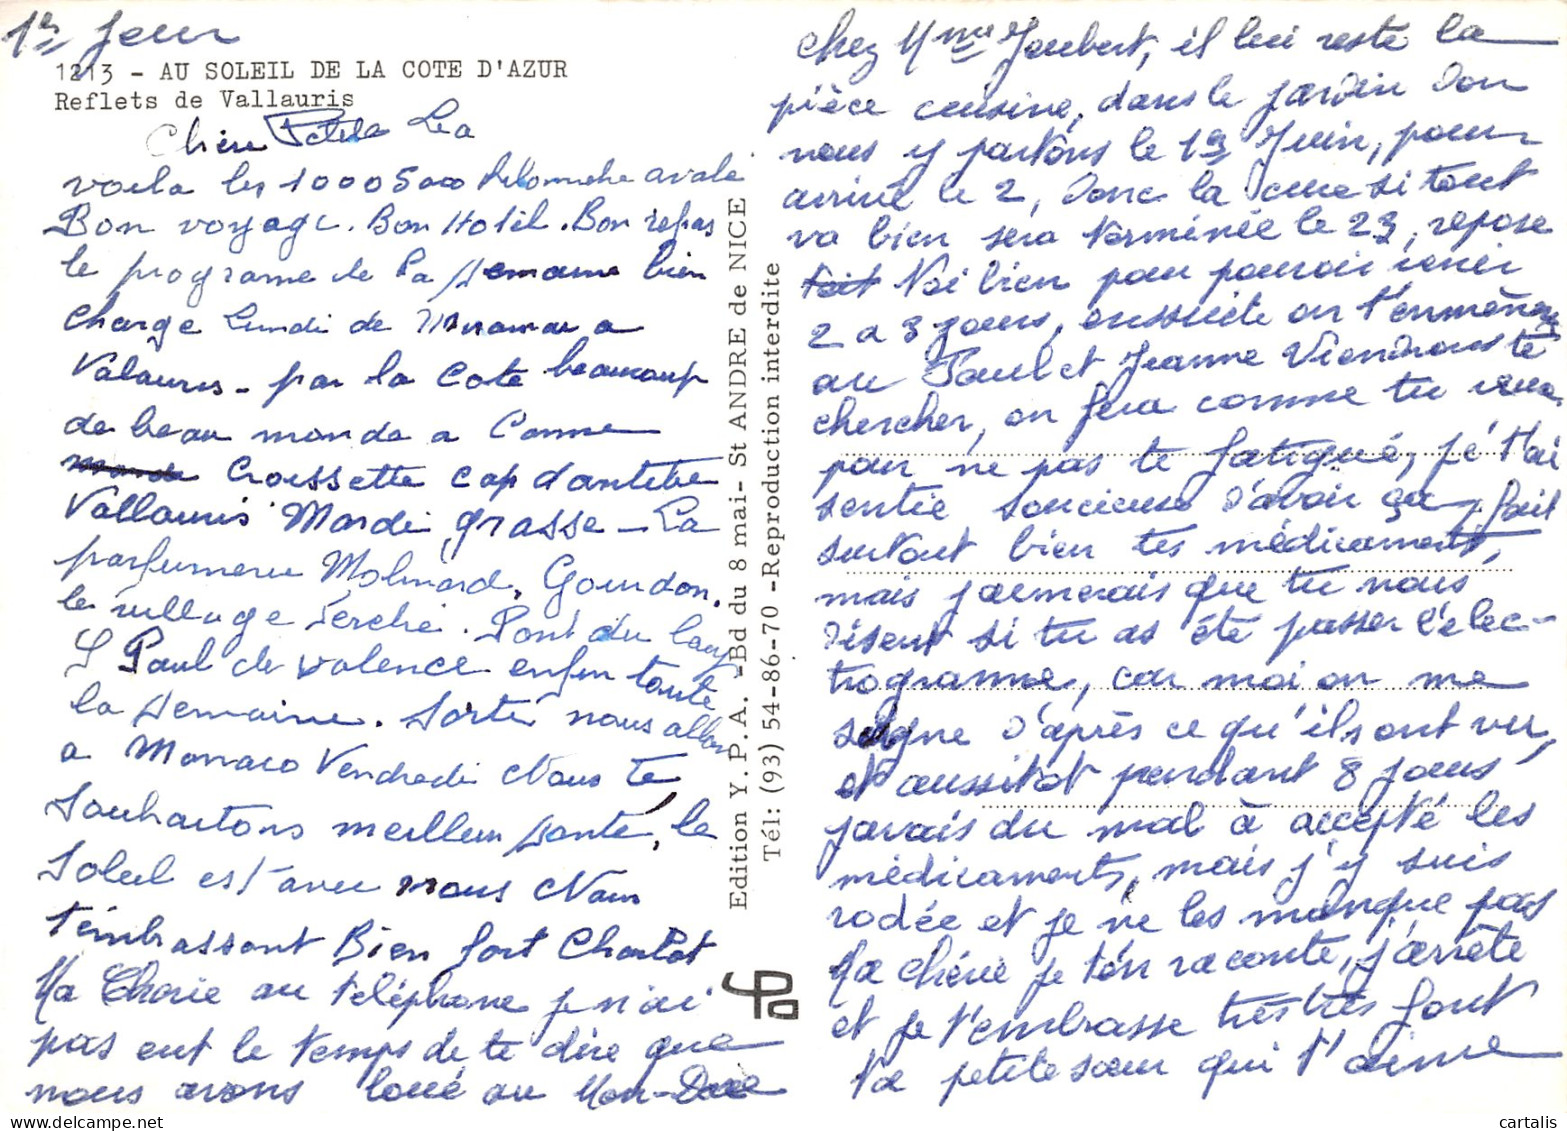 1er jour
1213 - AU SOLEIL DE LA COTE D'AZUR
Reflets de Vallauris
Chère Petite Lea
voila les 1000 5000 Kilometre avalé
Bon voyage. Bon Hotel. Bon repas
le programe de la semaine bien
charge Lundi de Miramar a
Valauris - par la Cote beaucoup
de beau monde a Canne
Croissette Cap d'antibe
Vallauris Mardi grasse - La
parfumerie Molinard, Gourdon.
le village Perché. Pont du loup
S Paul de valence enfin toute
la semaine. Sortie nous allon
a Monaco Vendredi Nous te
souhaitons meilleur santé, le
Soleil est avec nous Nous
t'embrassont Bien fort Charlot
Ma Cherie au téléphone je n'ai
pas eut le temps de te dire que
nous avons loué au Mon-Dore
chez Mme Joubert, il lui reste la
pièce cuisine, dans le jardin Don
nous y partons le 1er Juin, pour
arrivé le 2, Donc la cure si tout
va bien sera terminée le 23, repose
toi bien pour pouvoir venir
2 a 3 jours, ensuite on t'emmène
au Paul et Jeanne Viendrons te
chercher, on fera comme tu veux
pour ne pas te fatigué, je t'ai
sentie soucieuse d'avoir ça, fait
surtout bien tes médicaments,
mais j'aimerais que tu nous
disent si tu as été passer l'élec-
trogramme, car moi on me
soigne d'après ce qu'ils ont vu,
et aussitot pendant 8 jours
j'avais du mal à accepté les
médicaments, mais j'y suis
rodée et je ne les manque pas
Ma chérie je t'en raconte, j'arrête
et je t'embrasse très très fort
Ta petite sœur qui t'aime
Edition Y. P. A. - Bd du 8 mai - St ANDRE de NICE
Tél: (93) 54-86-70 - Reproduction interdite
YPa
© cartalis